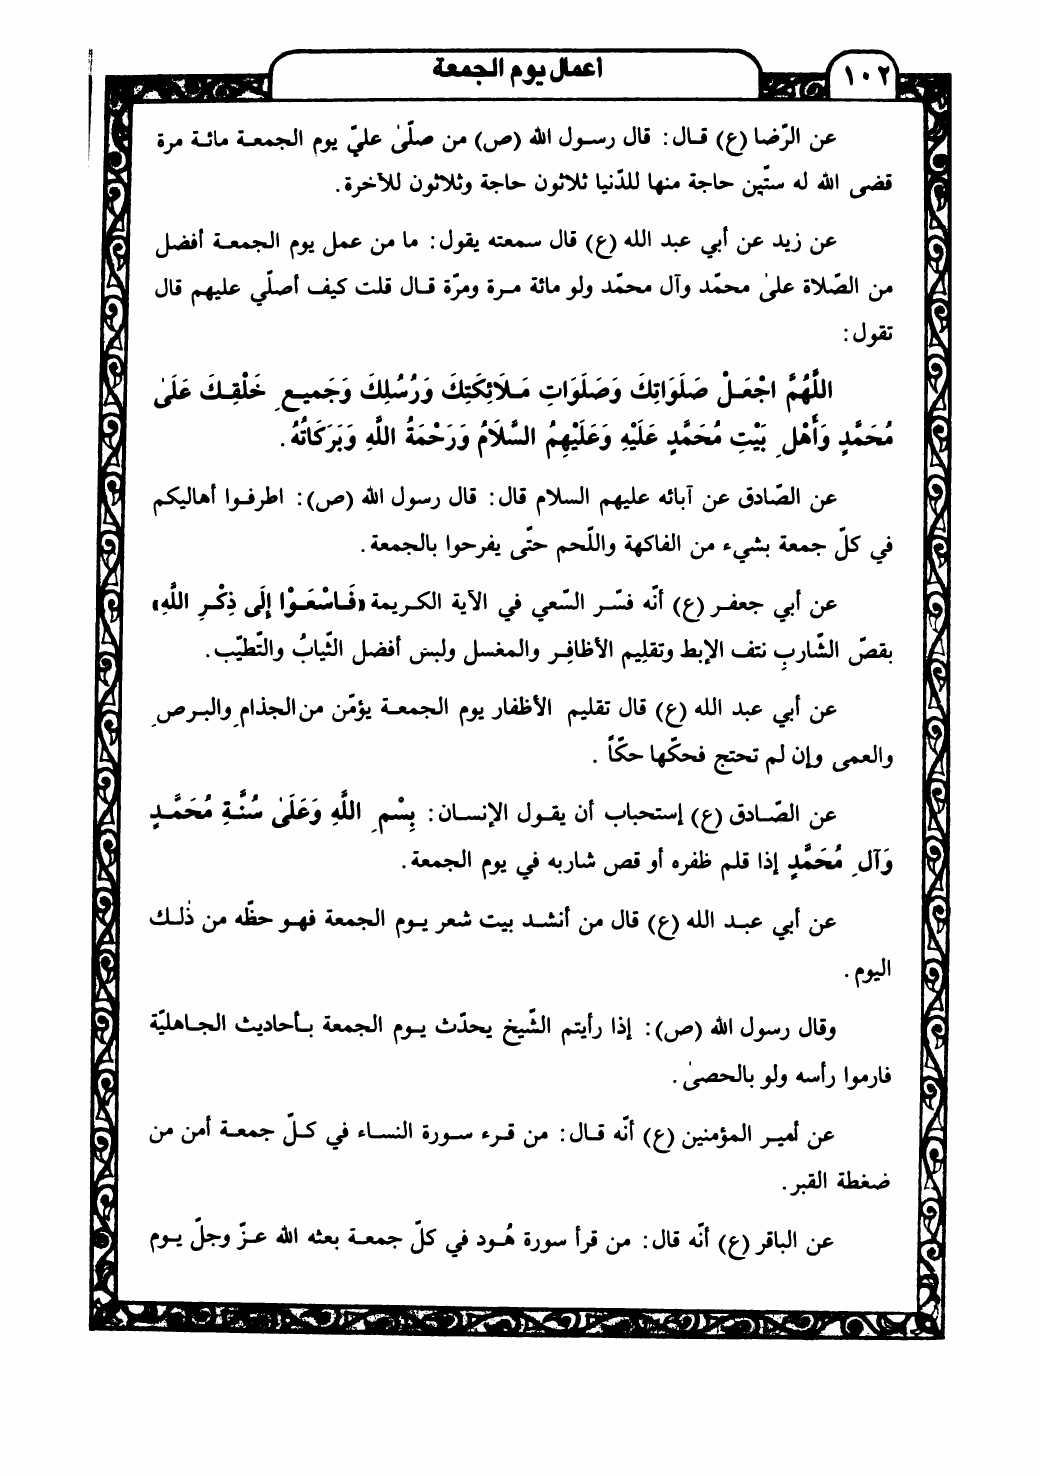 ١٠٢
أعمال يوم الجمعة
عن الرّضا (ع) قال: قال رسول الله (ص) من صلّىٰ عليّ يوم الجمعة مائة مرة
قضى الله له ستّين حاجة منها للدّنيا ثلاثون حاجة وثلاثون للآخرة.
عن زيد عن أبي عبد الله (ع) قال سمعته يقول: ما من عمل يوم الجمعة أفضل
من الصّلاة علىٰ محمّد وآل محمّد ولو مائة مرة ومرّة قال قلت كيف أصلّي عليهم قال
تقول:
اللَّهُمَّ اجْعَلْ صَلَوَاتِكَ وَصَلَوَاتِ مَلَائِكَتِكَ وَرُسُلِكَ وَجَمِيعِ خَلْقِكَ عَلَىٰ
مُحَمَّدٍ وَأَهْلِ بَيْتِ مُحَمَّدٍ عَلَيْهِ وَعَلَيْهِمُ السَّلَامُ وَرَحْمَةُ اللَّهِ وَبَرَكَاتُهُ.
عن الصّادق عن آبائه عليهم السلام قال: قال رسول الله (ص): اطرفوا أهاليكم
في كلّ جمعة بشيء من الفاكهة واللّحم حتّى يفرحوا بالجمعة.
عن أبي جعفر (ع) أنّه فسّر السّعي في الآية الكريمة «فَاسْعَوْا إِلَى ذِكْرِ اللَّهِ»
بقصّ الشّاربِ نتف الإبط وتقليم الأظافِر والمغسل ولبس أفضل الثّيابُ والتّطيّب.
عن أبي عبد الله (ع) قال تقليم الأظفار يوم الجمعة يؤمّن من الجذامِ والبرصِ
والعمى وإن لم تحتج فحكّها حكّاً .
عن الصّادق (ع) إستحباب أن يقول الإنسان: بِسْمِ اللَّهِ وَعَلَىٰ سُنَّةِ مُحَمَّدٍ
وَآلِ مُحَمَّدٍ إذا قلم ظفره أو قص شاربه في يوم الجمعة.
عن أبي عبد الله (ع) قال من أنشد بيت شعر يوم الجمعة فهو حظّه من ذٰلك
اليوم.
وقال رسول الله (ص): إذا رأيتم الشّيخ يحدّث يوم الجمعة بأحاديث الجاهليّة
فارموا رأسه ولو بالحصىٰ.
عن أمير المؤمنين (ع) أنّه قال: من قرء سورة النساء في كلّ جمعة أمن من
ضغطة القبر.
عن الباقر (ع) أنّه قال: من قرأ سورة هُود في كلّ جمعة بعثه الله عزّ وجلّ يوم